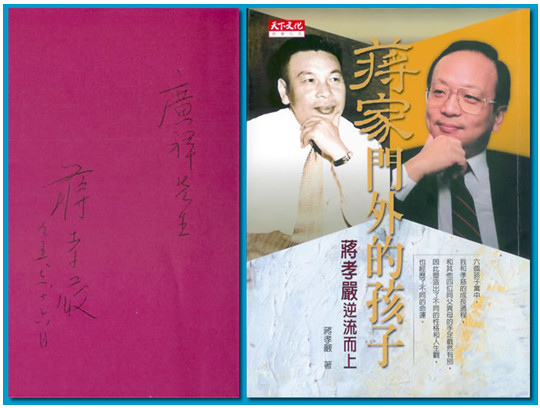 廣祥先生
蔣孝嚴
天下文化
蔣家門外的孩子
蔣孝嚴逆流而上
蔣孝嚴 著
六個孫子輩中，
我和孝慈的成長過程，
和其他四位同父異母的手足截然有別，
因此塑造出了不同的性格和人生觀，
也經歷了不同的命運。